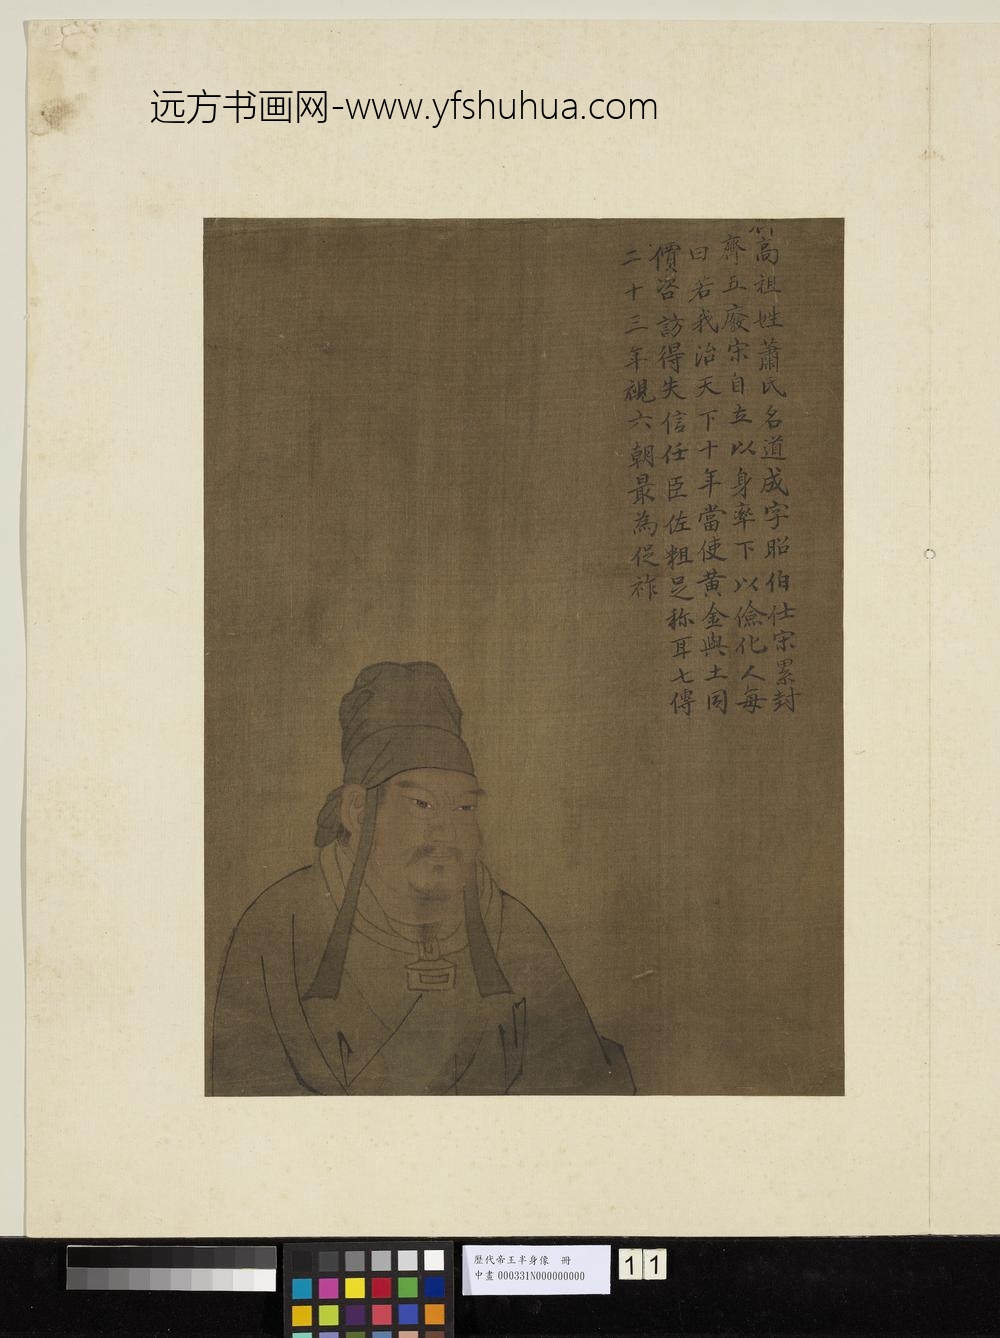 远方书画网-www.yfshuhua.com
高祖姓蕭氏名道成字昭伯仕宋累封
齊五廢宋自立以身率下以儉化人每
曰若我治天下十年當使黃金與土同
價咨訪得失信任臣佐粗足称耳七傳
二十三年視六朝最為促祚
歷代帝王半身像 冊
中畫 000331N000000000
11